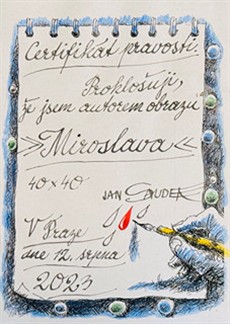 Certifikát pravosti.
Prohlašuji,
že jsem autorem obrazu
»Miroslava«
40×40
JAN
V Praze
dne 12. srpna
2023